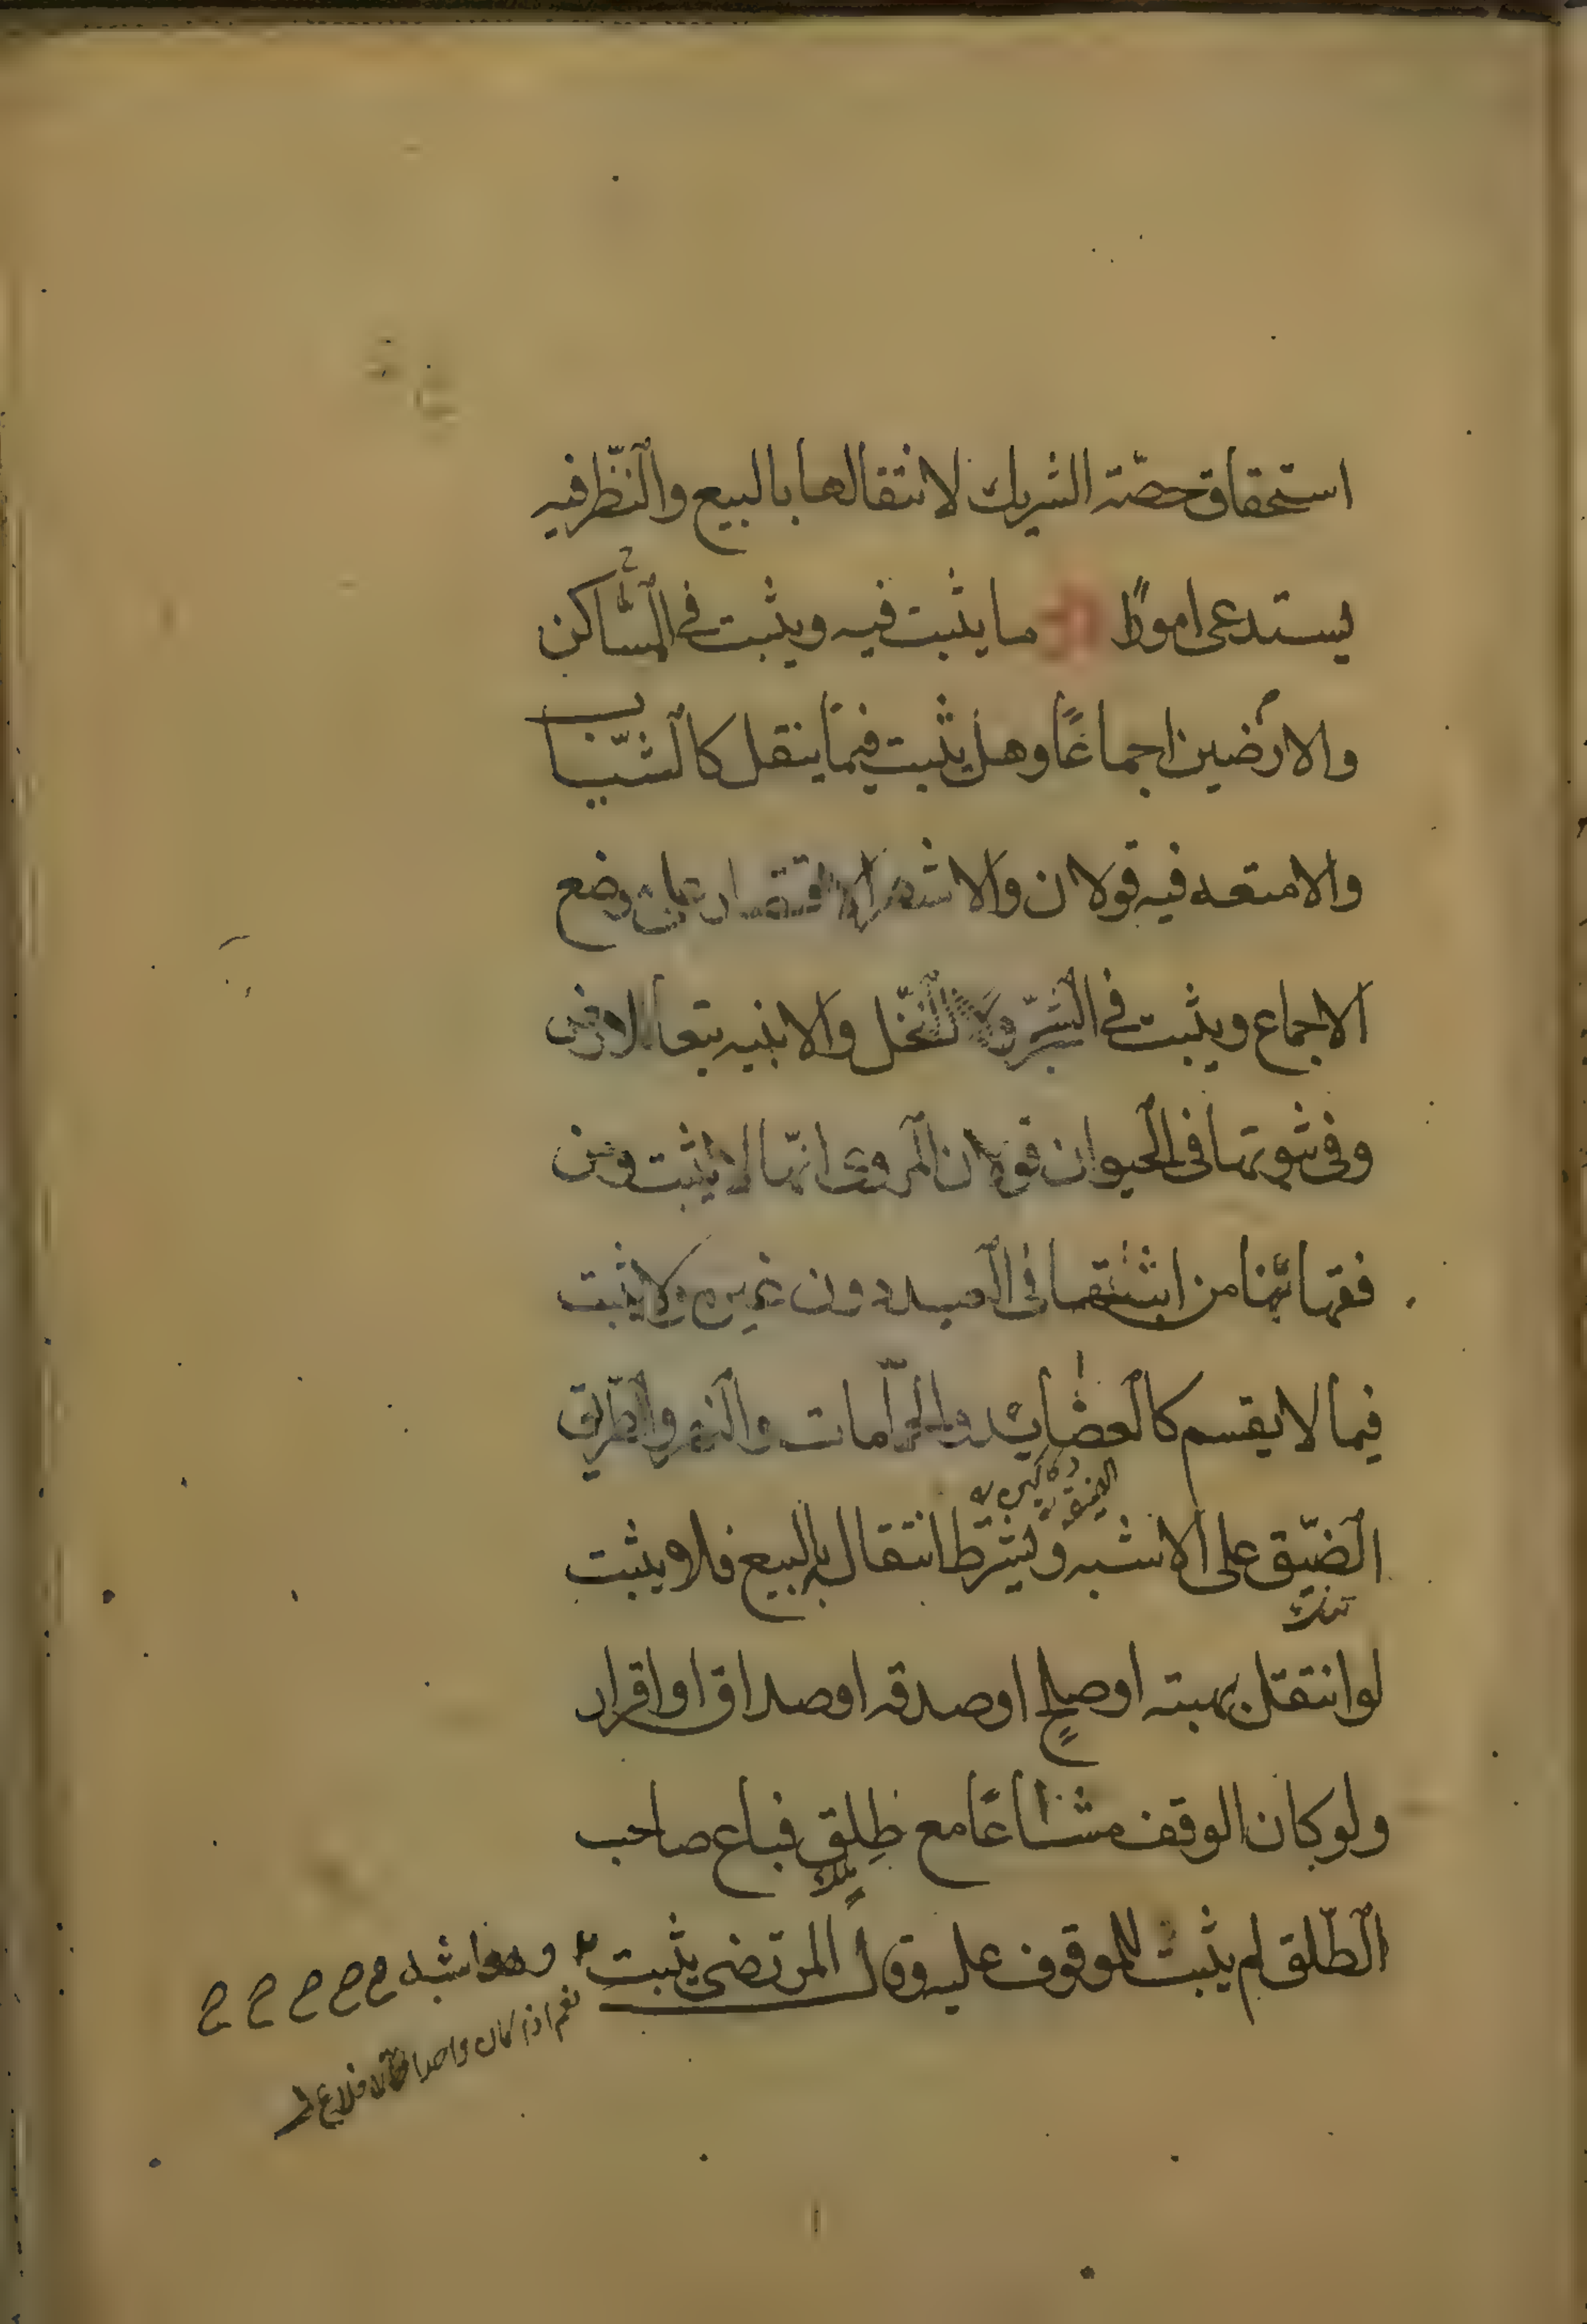 استحقاق حصّة الشريك لانتقالها بالبيع والنّظر فيه
يستدعى امورًا ما يثبت فيه ويثبت فى المساكن
والارضين اجماعًا وهل يثبت فيما ينقل كالثّياب
والامتعه فيه قولان والاشهر الاقتصار على موضع
الاجماع ويثبت فى الشجر والنّخل والابنيه تبعا للارض
وفى ثبوتها فى الحيوان قولان المروى انّها لا يثبت ومن
فقهائنا من اثبتها فى العبد دون غيره ولا يثبت
فيما لا يقسم كالعضايد والحمّامات والنهر والطريق
الضّيق على الاشبه ويشترط انتقاله بالبيع فلا يثبت
تنك
لو انتقل بهبته او صلحٍ او صدقه او صداق او اقرار
ولو كان الوقف مشاعًا مع طِلقٍ فباع صاحب
ملك
الطّلق لم يثبت للموقوف عليه وقال المرتضى يثبت وهو اشبه
نعم اذا كان واحدا